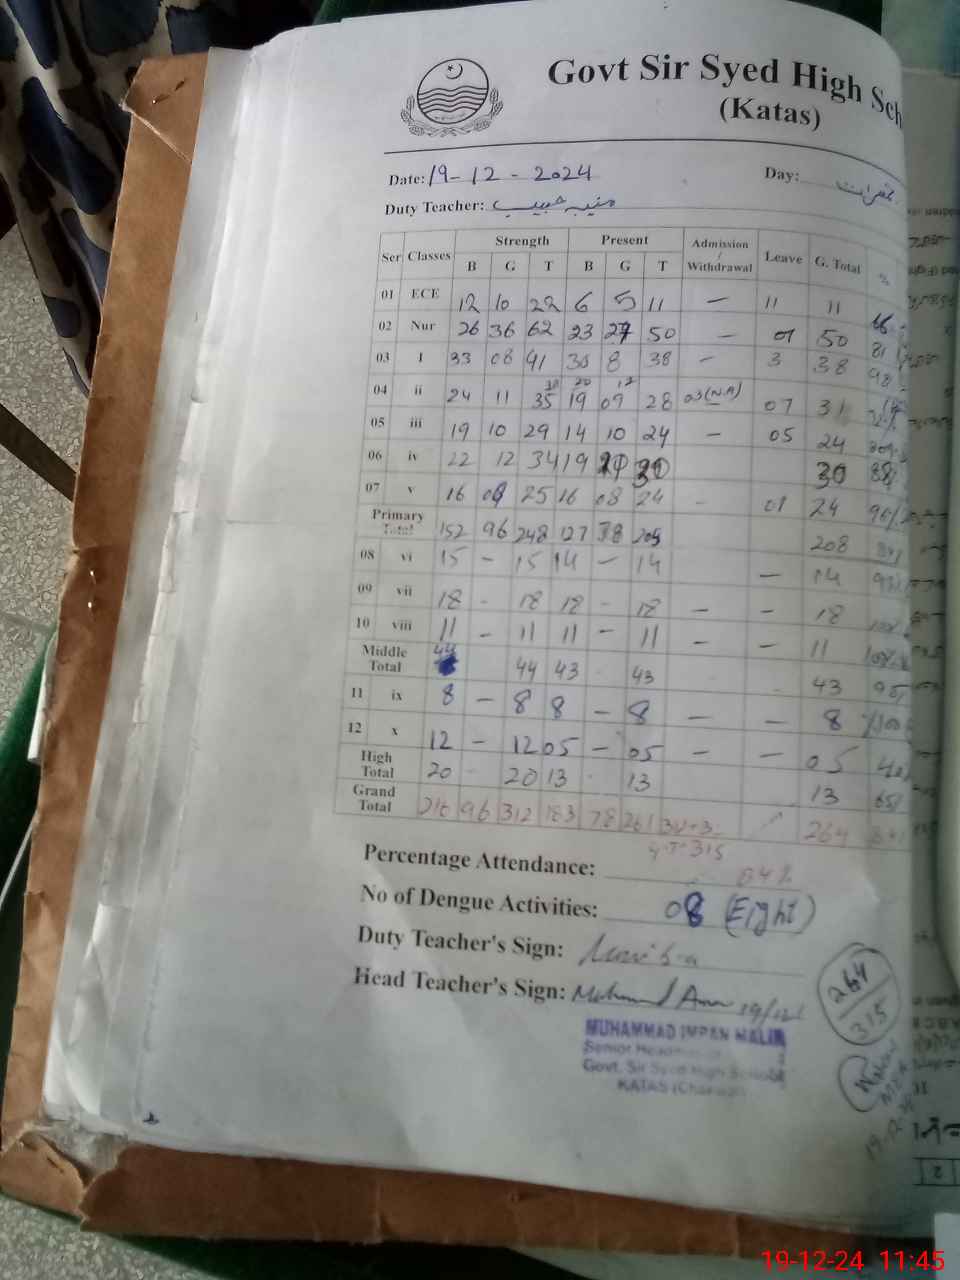 Govt Sir Syed High Sch
(Katas)
Date: 19-12-2024 Day: جمعرات
Duty Teacher: منیبہ حبیب
Ser Classes Strength Present Admission / Withdrawal Leave G. Total
B G T B G T
01 ECE 12 10 22 6 5 11 — 11 11
02 Nur 26 36 62 23 27 50 — 01 50
03 I 33 08 41 30 8 38 — 3 38
04 ii 24 11 35 19 09 28 03(N.A) 07 31
05 iii 19 10 29 14 10 24 — 05 24
06 iv 22 12 34 19 30 30
07 v 16 09 25 16 08 24 - 01 24
Primary Total 152 96 248 127 78 205 208
08 vi 15 — 15 14 — 14 — 14
09 vii 18 - 18 18 - 18 — — 18
10 viii 11 — 11 11 — 11 — — 11
Middle Total 44 44 43 43 43
11 ix 8 — 8 8 — 8 — — 8
12 x 12 — 12 05 — 05 — — 05
High Total 20 - 20 13 - 13 13
Grand Total 216 96 312 183 78 261 312+3 264
G.T=315
Percentage Attendance: 84%
No of Dengue Activities: 08 (Eight)
Duty Teacher's Sign: Muniba
Head Teacher's Sign: 19/12/
264
315
MUHAMMAD IMRAN MALIK
Senior Headmaster
Govt. Sir Syed High School
KATAS (Chakwal)
MEA
19-12-24 11:45